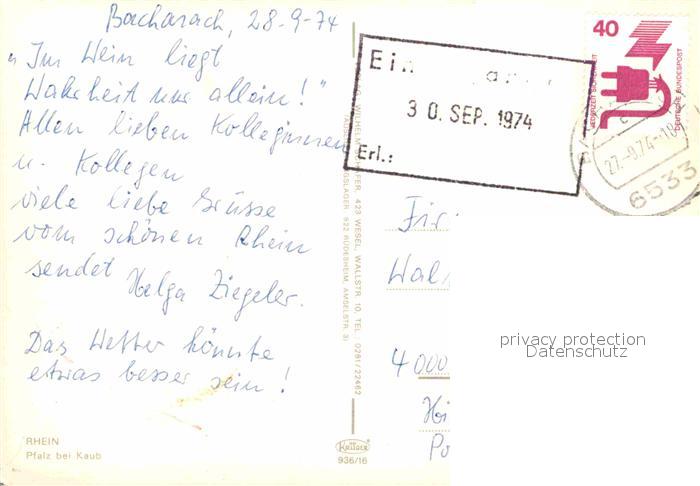 Bacharach, 28-9-74
„Im Wein liegt
Wahrheit nur allein!"
Allen lieben Kolleginnen
u. Kollegen
viele liebe Grüsse
vom schönen Rhein
sendet Helga Ziegeler.
Das Wetter könnte
etwas besser sein!
RHEIN
Pfalz bei Kaub
423 WESEL, WALLSTR. 10, TEL. 0281/22462
622 RÜDESHEIM, AMSELSTR. 3
Krüger
936/16
Ein
30. SEP. 1974
Erl.:
40
JEDERZEIT SICHERHEIT
DEUTSCHE BUNDESPOST
27.-9.74-18
6533
Fir
4000
privacy protection
Datenschutz